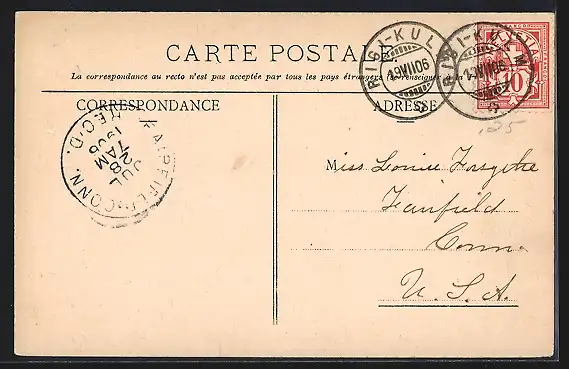 CARTE POSTALE
La correspondance au recto n'est pas acceptée par tous les pays étrangers
CORRESPONDANCE
ADRESSE
RIGI-KUL
19.VII.06
10
.25
FAIRFIELD, CONN.
JUL
28
7 AM
1906
REC'D.
Miss Louise Forsythe
Fairfield
Conn
U. S. A.